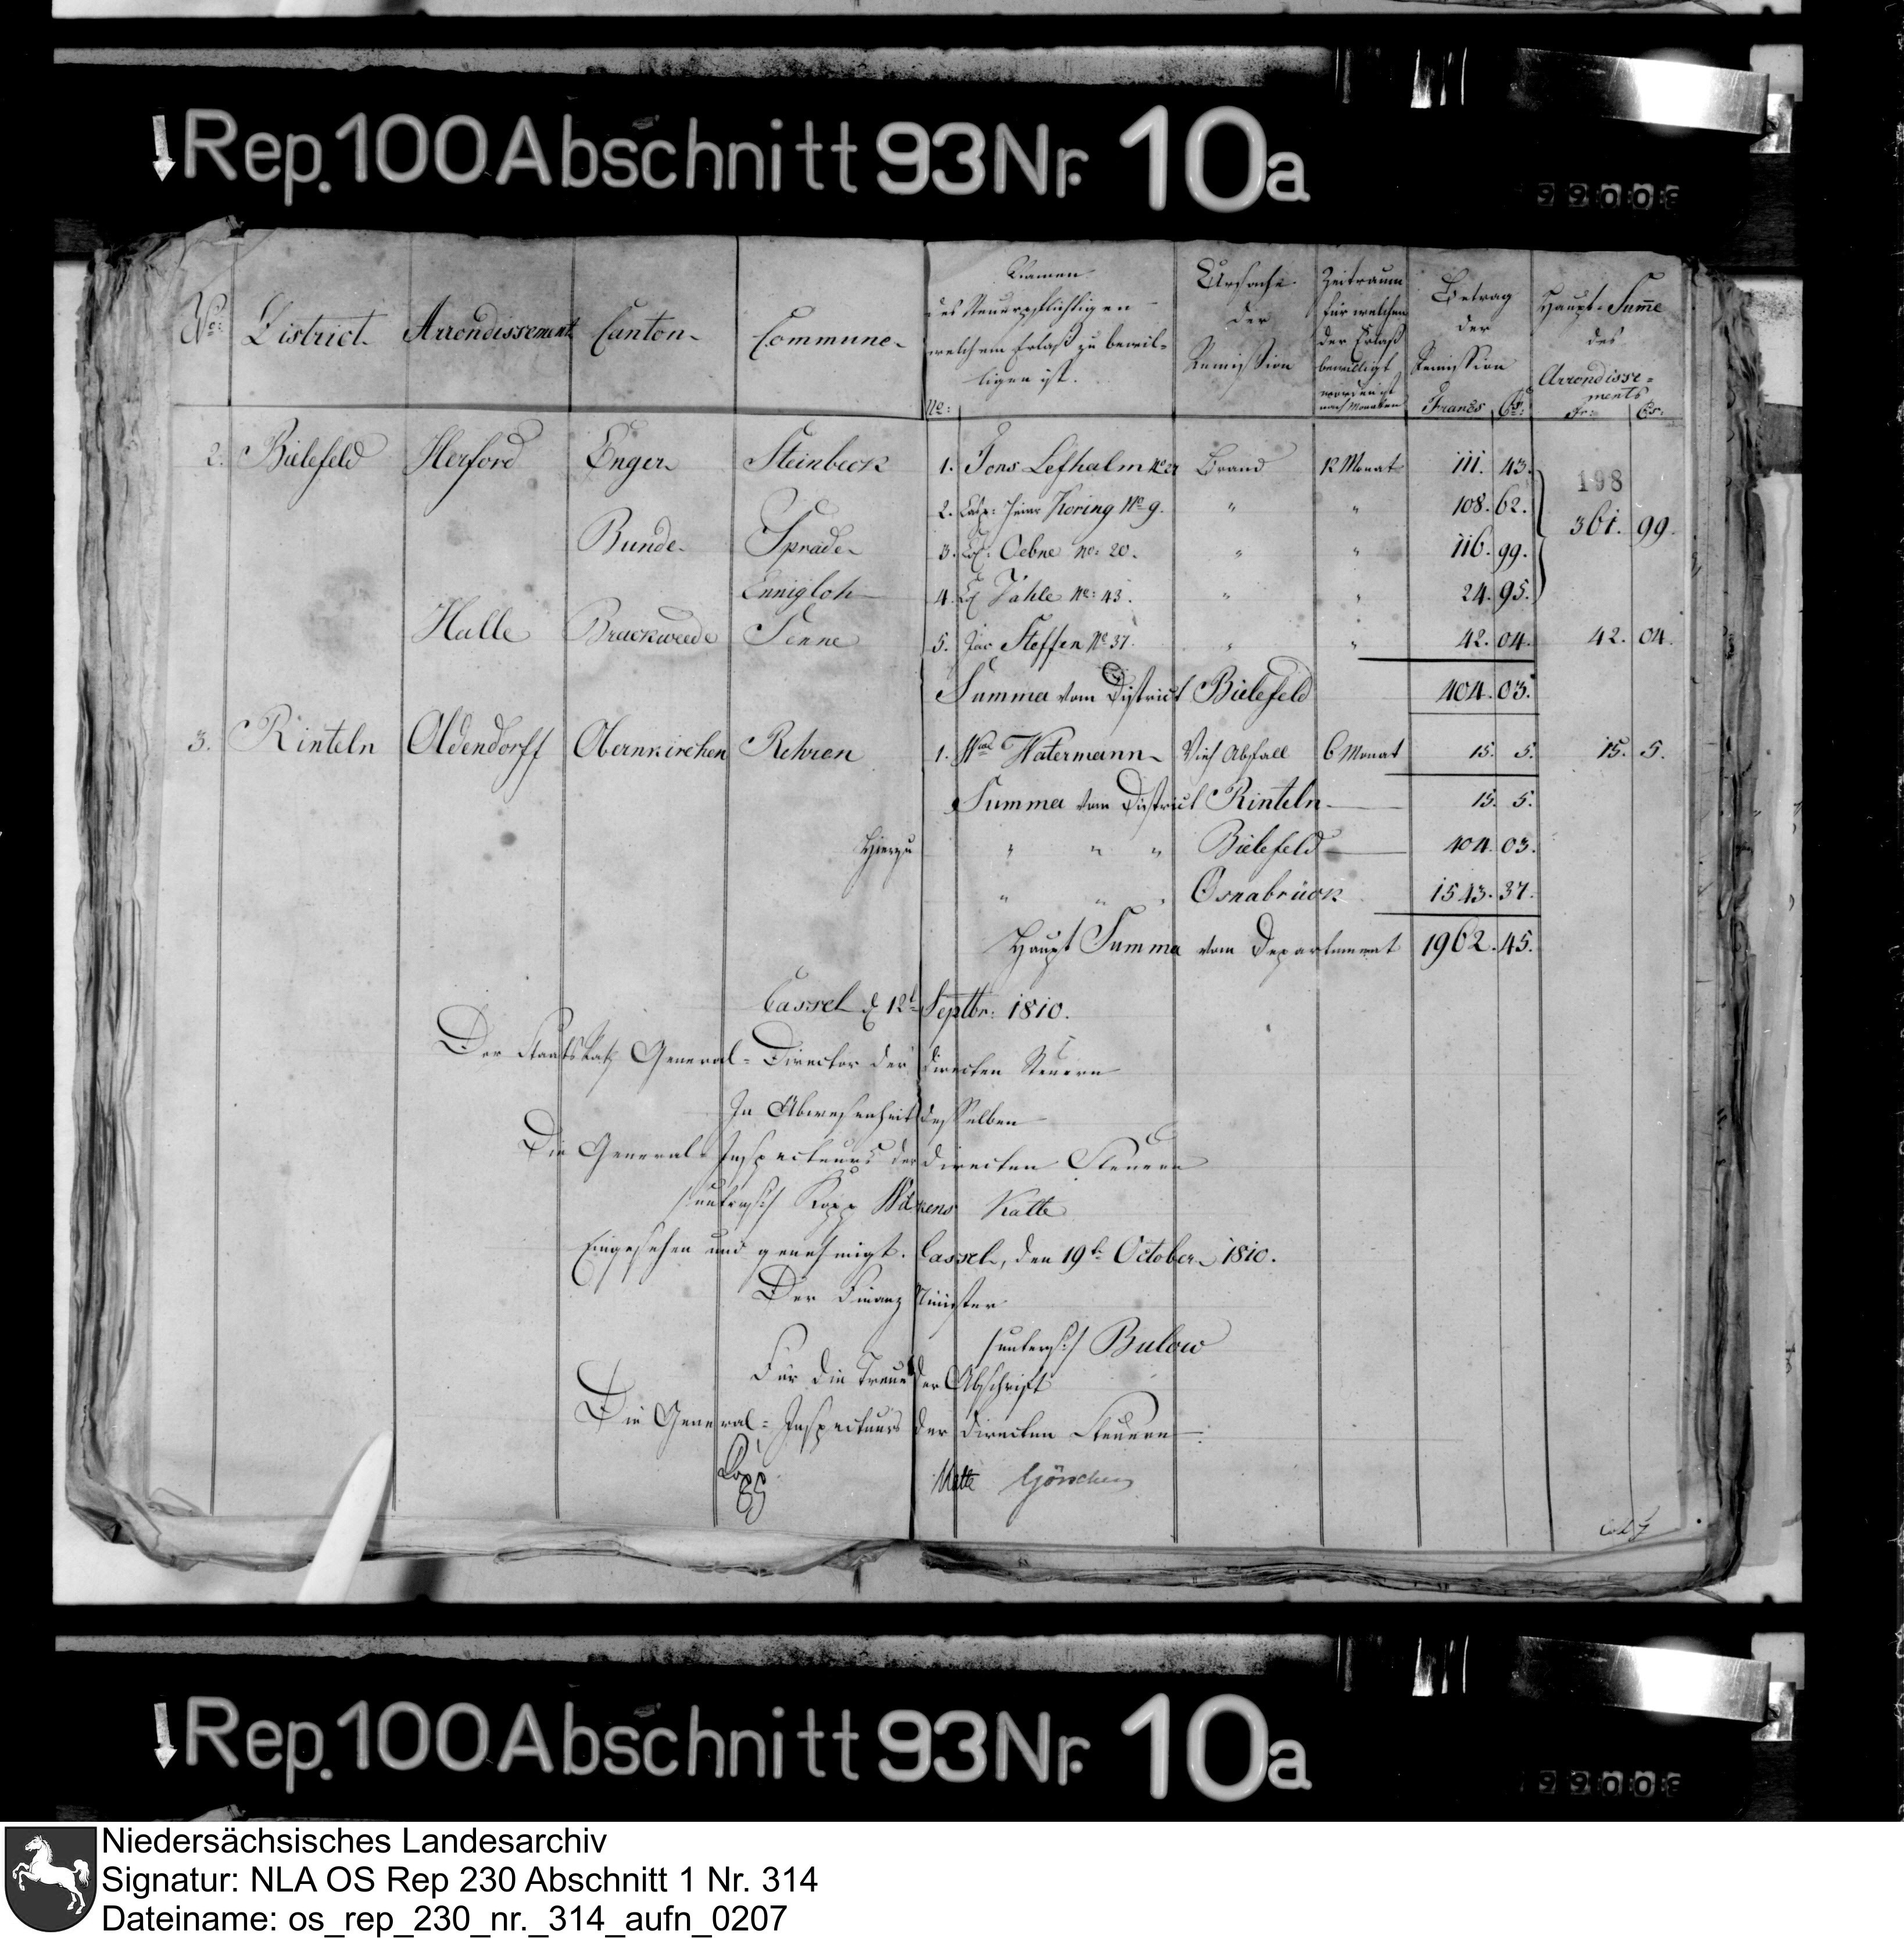 Rep.100Abschnitt 93Nr. 10a
No: District Arrondissement Canton Commune Namen des Steuerpflichtigen welchem Erlaß zu bewilligen ist. Ursache der Remission Zeitraum für welchen der Erlaß bewilligt worden ist nach Monaten Betrag der Remission Francs Cs: Haupt-Summe des Arrondissements Fr: Cs:
No:
2. Bielefeld Herford Enger Steinbeck 1. Brand 12 Monat 111. 43.
198
2. Koring No 9. " " 108. 62.
361. 99.
Bunde Sprade 3. Oebne No: 20. " " 116. 99.
Ennigloh 4. Tähle No: 43. " " 24. 95.
Halle Brackweede Senne 5. Jac Steffen No 37. " " 42. 04. 42. 04.
Summa vom District Bielefeld 404. 03.
3. Rinteln Oldendorff Obernkirchen Rehren 1. Watermann Vieh Abfall 6 Monat 15. 5. 15. 5.
Summa vom District Rinteln 15. 5.
Hierzu " " " Bielefeld 404. 03.
" " " Osnabrück 1543. 37.
Haupt Summa vom Departement 1962. 45.
Cassel d 12t Septbr: 1810.
Der Staatsrath General-Director der directen Steuern
In Abwesenheit desselben
Die General-Inspecteurs der directen Steuern
Kopp Wilkens Katte
Eingesehen und genehmigt. Cassel, den 19t October 1810.
Der Finanz Minister
/untersch:/ Bulow
Für die Treue der Abschrift
Die General-Inspecteurs der directen Steuern
Kopp
Rep.100Abschnitt 93Nr. 10a
Niedersächsisches Landesarchiv
Signatur: NLA OS Rep 230 Abschnitt 1 Nr. 314
Dateiname: os_rep_230_nr._314_aufn_0207